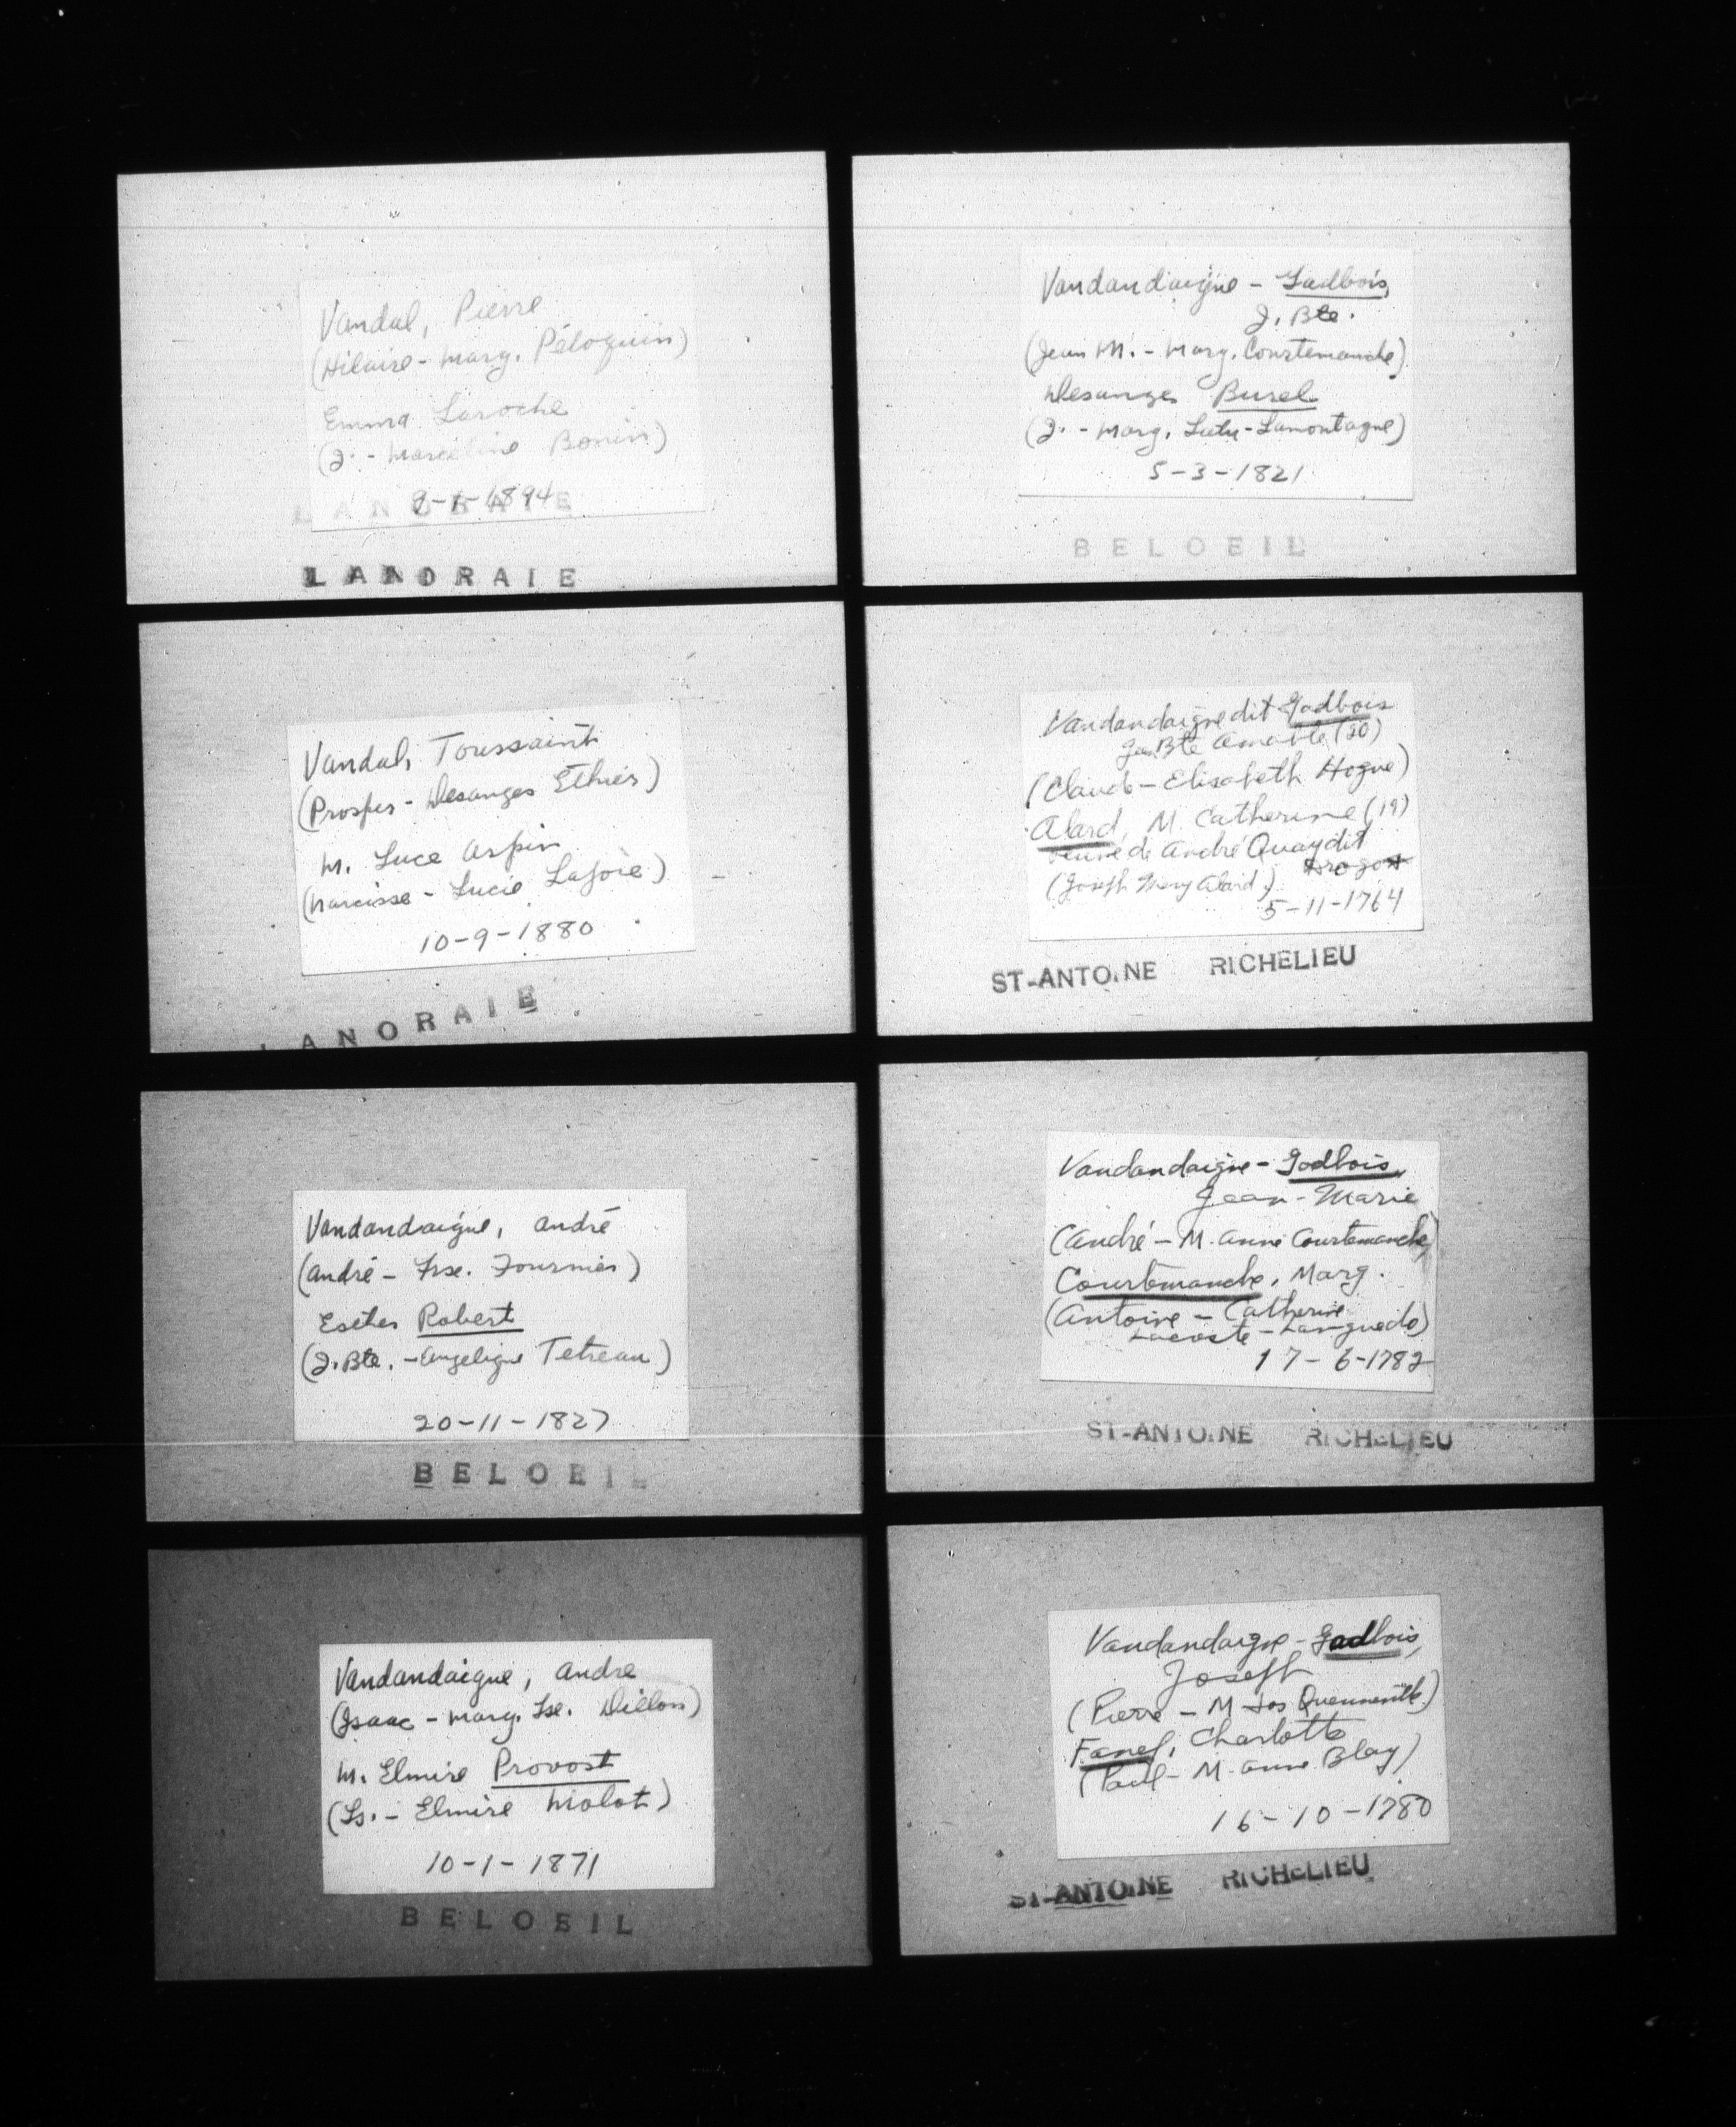 Vandal, Pierre
(Hilaire - Marg. Péloquin)
Emma Laroche
(J. - Marceline Bonin)
1894
LANORAIE
LANORAIE
Vandal, Toussaint
(Prosper - Desanges Éthier)
M. Luce Arpin
(Narcisse - Lucie Lajoie)
10-9-1880
LANORAIE
Vandandaigue, André
(André - Frse. Fournier)
Esther Robert
(J. Bte. - Angelique Tetreau)
20-11-1827
BELOEIL
Vandandaigue, Andre
(Isaac - Marg. Lse. Dillon)
M. Elmire Provost
(Ls. - Elmire Malot)
10-1-1871
BELOEIL
Vandandaigue - Gadbois,
J. Bte.
(Jean M. - Marg. Courtemanche)
Desanges Burel
(J. - Marg. - Lamontagne)
5-3-1821
BELOEIL
Vandandaigue dit Gadbois
Jean Bte Amable (20)
(Claude - Elisabeth Hogue)
Alard, M. Catherine (19)
veuve de André Quay dit
Dragon
(Joseph Mary Alard)
5-11-1764
ST-ANTOINE RICHELIEU
Vandandaigue - Gadbois,
Jean-Marie
(André - M. Anne Courtemanche)
Courtemanche, Marg.
(Antoine - Catherine
Lacoste - Languedo)
17-6-1782
ST-ANTOINE RICHELIEU
Vandandaigue - Gadbois,
Joseph
(Pierre - M Jos Quenneville)
Fanef, Charlotte
(Paul - M. Anne Blay)
16-10-1780
ST-ANTOINE RICHELIEU